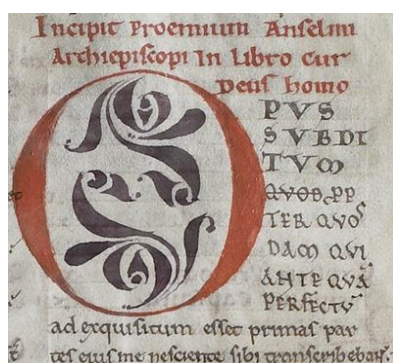 Incipit Proemium Anselmi
Archiepiscopi In Libro cur
Deus homo
OPUS
SUBDI
TUM
QUOD PP
TER QUOS
DAM QUI
ANTE QUĀ
PERFECTŪ
ad exquisitum esset primas par
tes eius me nesciente sibi transcribebant.